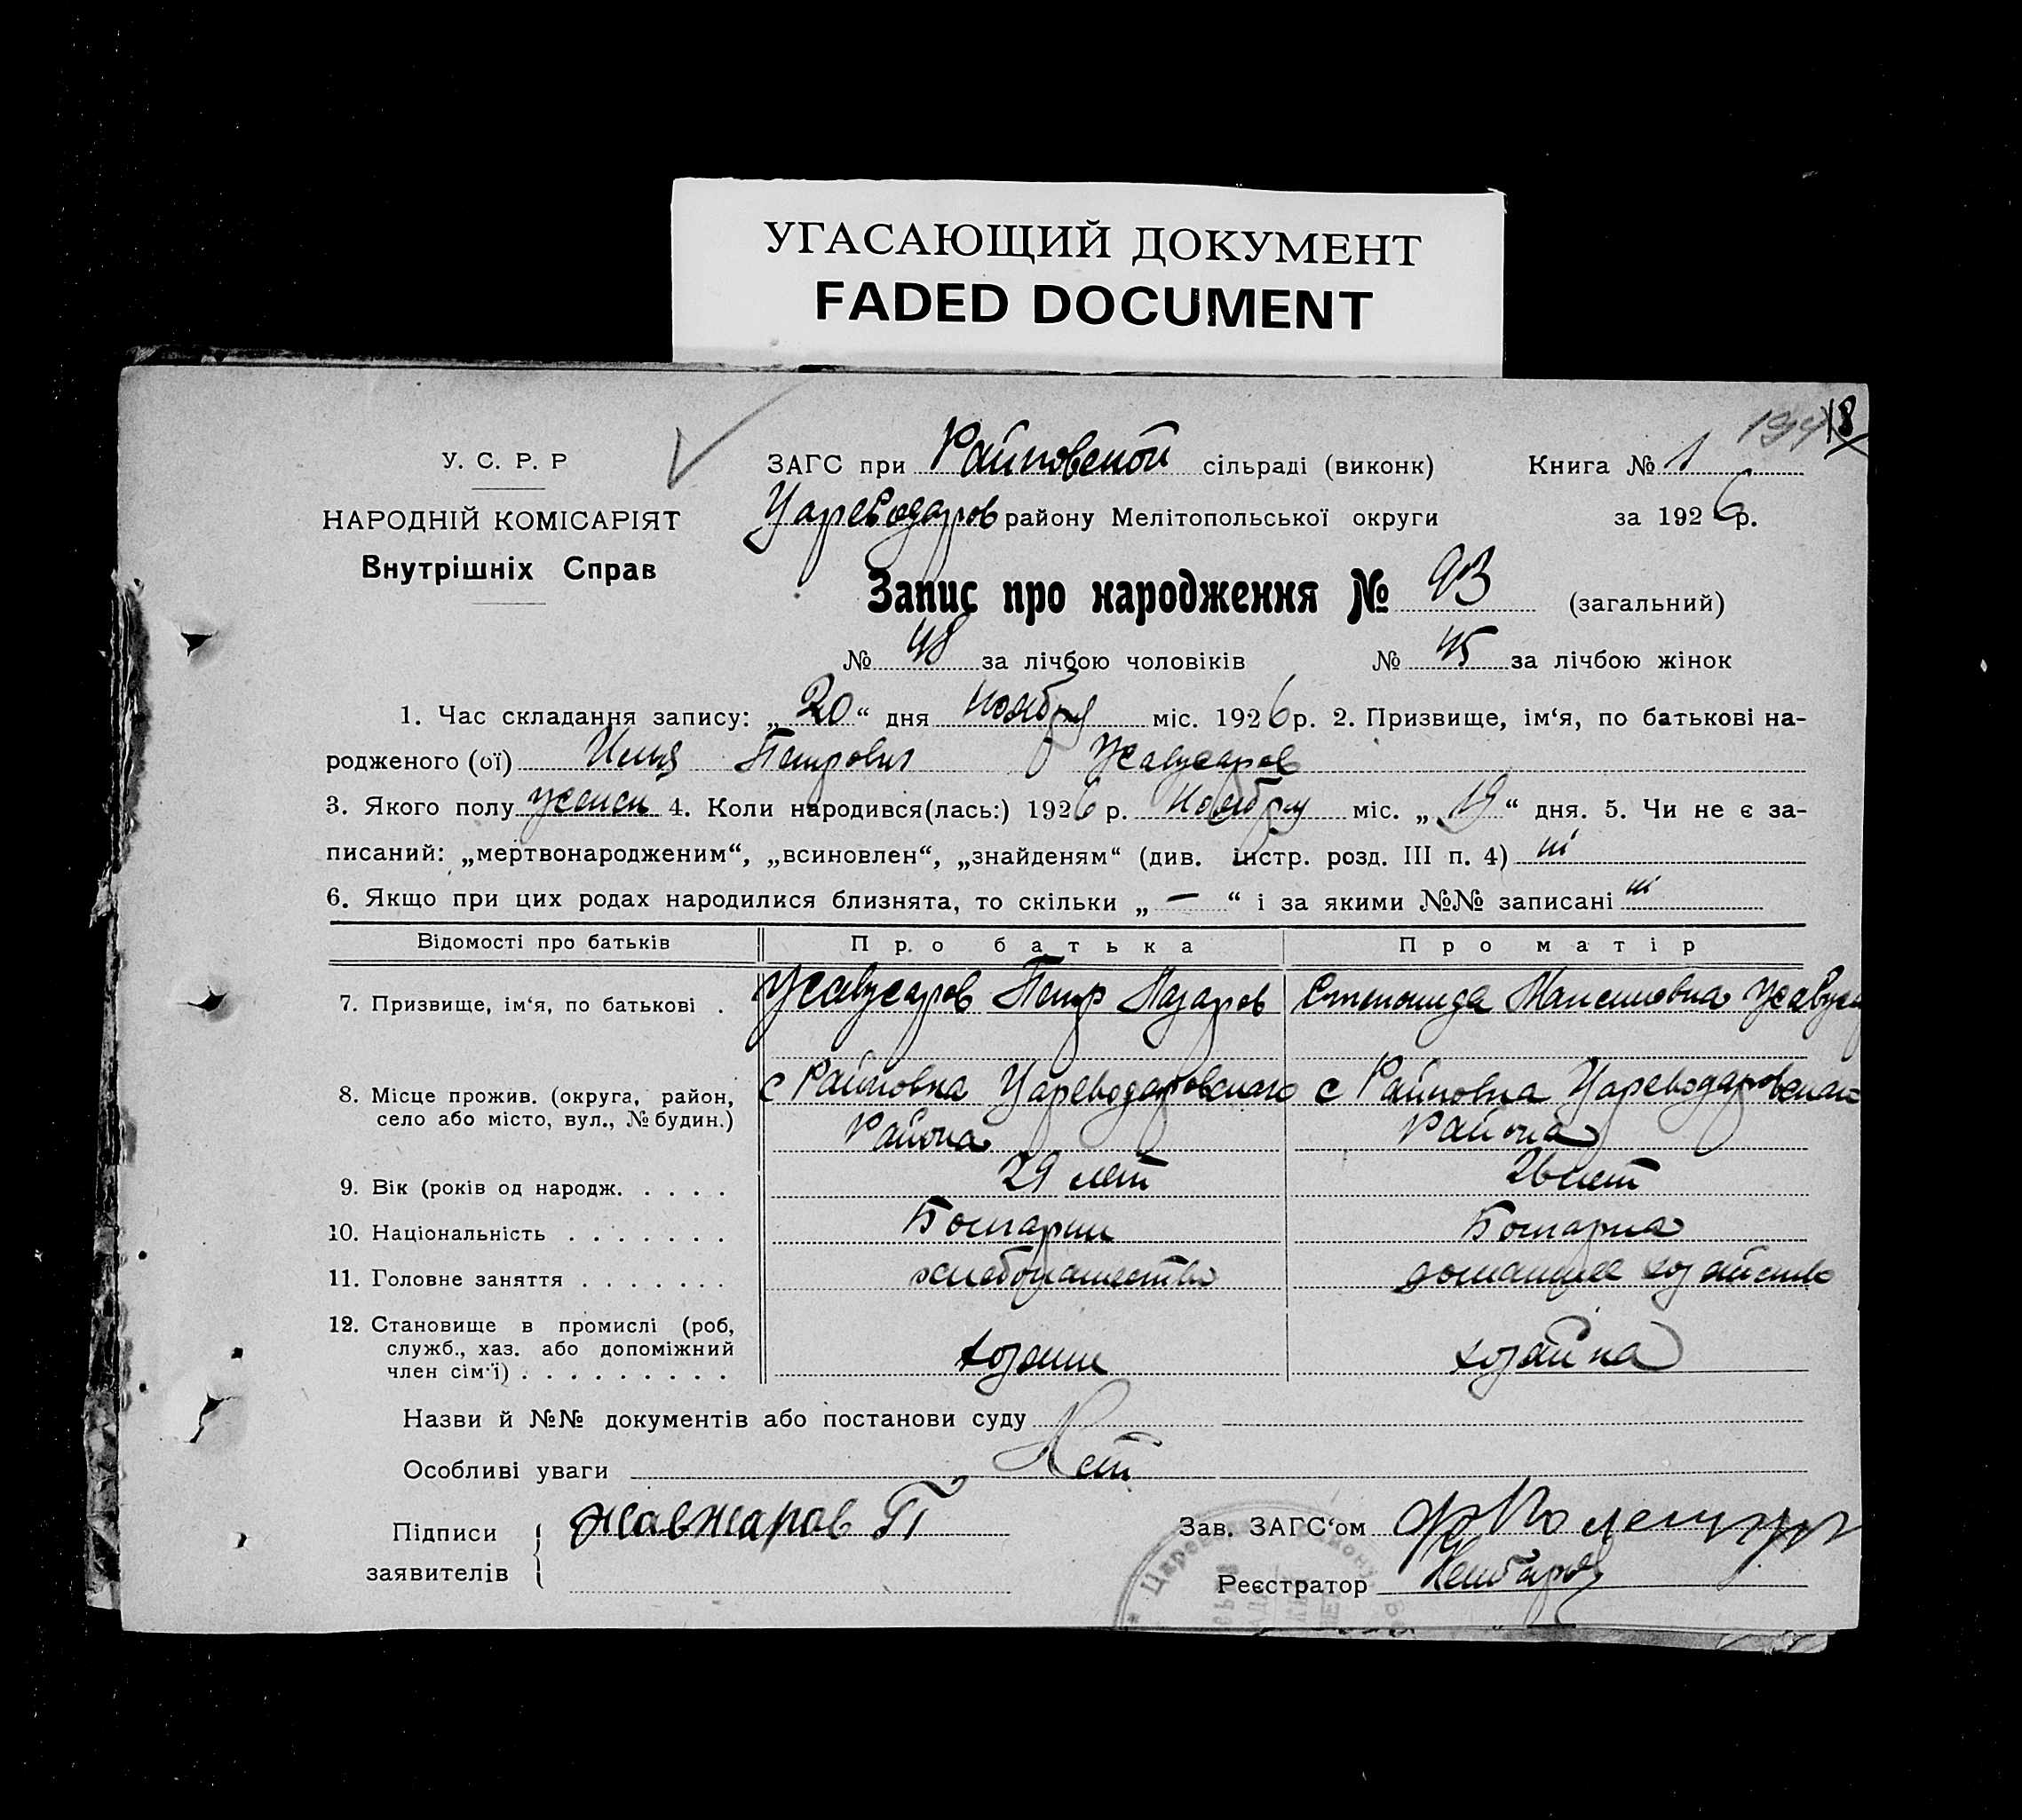 УГАСАЮЩИЙ ДОКУМЕНТ
FADED DOCUMENT
18
У. С. Р. Р
ЗАГС при Райновской сільраді (виконк) Книга № 1
НАРОДНІЙ КОМІСАРІЯТ
Цареводаров району Мелітопольської округи за 1926 р.
Внутрішніх Справ
Запис про народження № 93 (загальний)
№ 48 за лічбою чоловіків № 45 за лічбою жінок
1. Час складання запису: „20“ дня Ноября міс. 1926 р. 2. Призвище, ім‘я, по батькові на-
родженого (ої) Илья Петрович Жавжаров
3. Якого полу 4. Коли народився(лась:) 1926 р. Ноября міс. „19“ дня. 5. Чи не є за-
писаний: „мертвонародженим“, „всиновлен“, „знайденям“ (див. інстр. розд. III п. 4) ні
6. Якщо при цих родах народилися близнята, то скільки „—“ і за якими №№ записані ні
Відомості про батьків Про батька Про матір
7. Призвище, ім‘я, по батькові . Жавжаров Петр Назаров Максимовна
8. Місце прожив. (округа, район, с Райновка Цареводаровского с Райновка Цареводаровского
село або місто, вул., № будин.) Района Района
9. Вік (років од народж. . . . . 29 лет 26 лет
10. Національність . . . . . . . Болгарин Болгарка
11. Головне заняття . . . . . . . хлебопашество домашнее хозяйство
12. Становище в промислі (роб,
служб., хаз. або допоміжний
член сім‘ї) . . . . . . . . . хозяин хозяйка
Назви й №№ документів або постанови суду
Особливі уваги Нет
Підписи Жавжаров П Зав. ЗАГС‘ом
заявителів Реєстратор